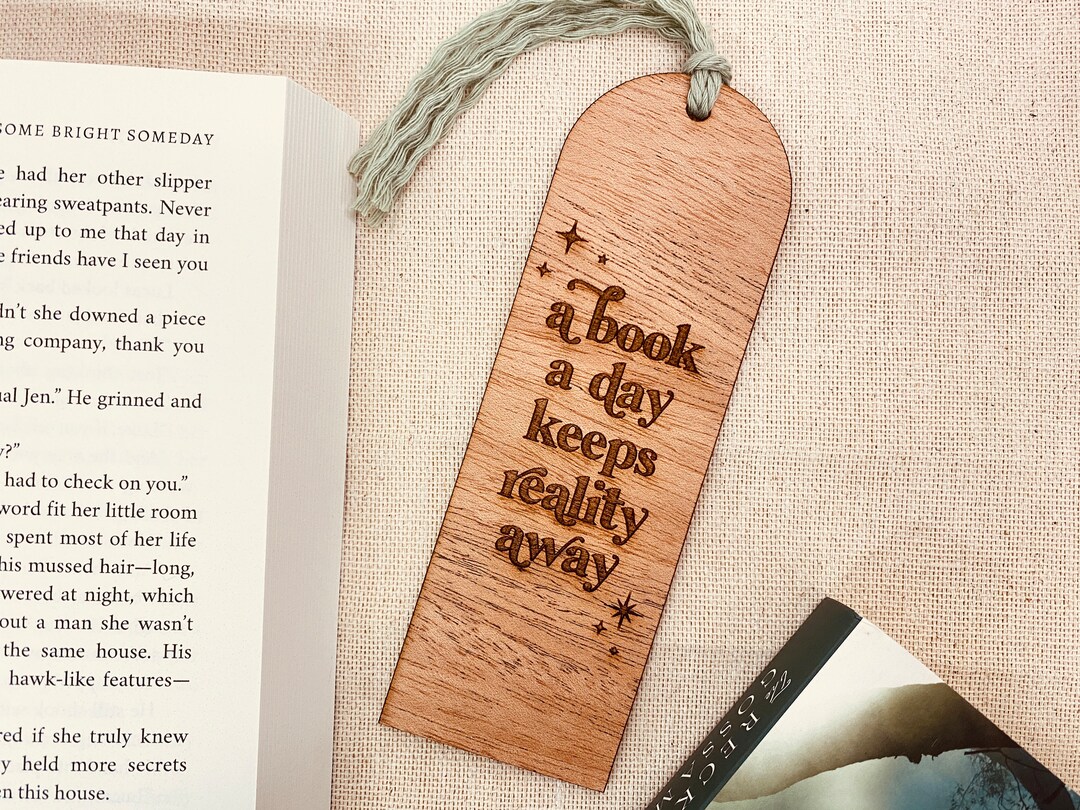 SOME BRIGHT SOMEDAY
had her other slipper
sweatpants. Never
up to me that day in
friends have I seen you
she downed a piece
company, thank you
Jen.” He grinned and
had to check on you.”
word fit her little room
spent most of her life
his mussed hair—long,
at night, which
a man she wasn’t
the same house. His
hawk-like features—
if she truly knew
held more secrets
this house.
a book
a day
keeps
reality
away
The RECK
GOSSA